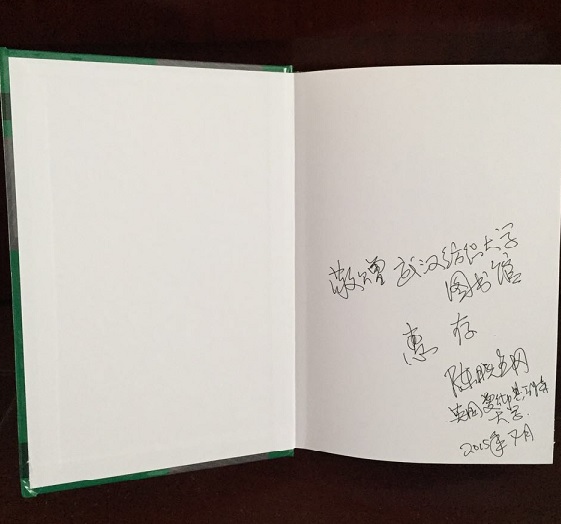 敬赠 武汉纺织大学
图书馆
惠 存
陈晓钢
英国曼彻斯特
大学
2015年7月